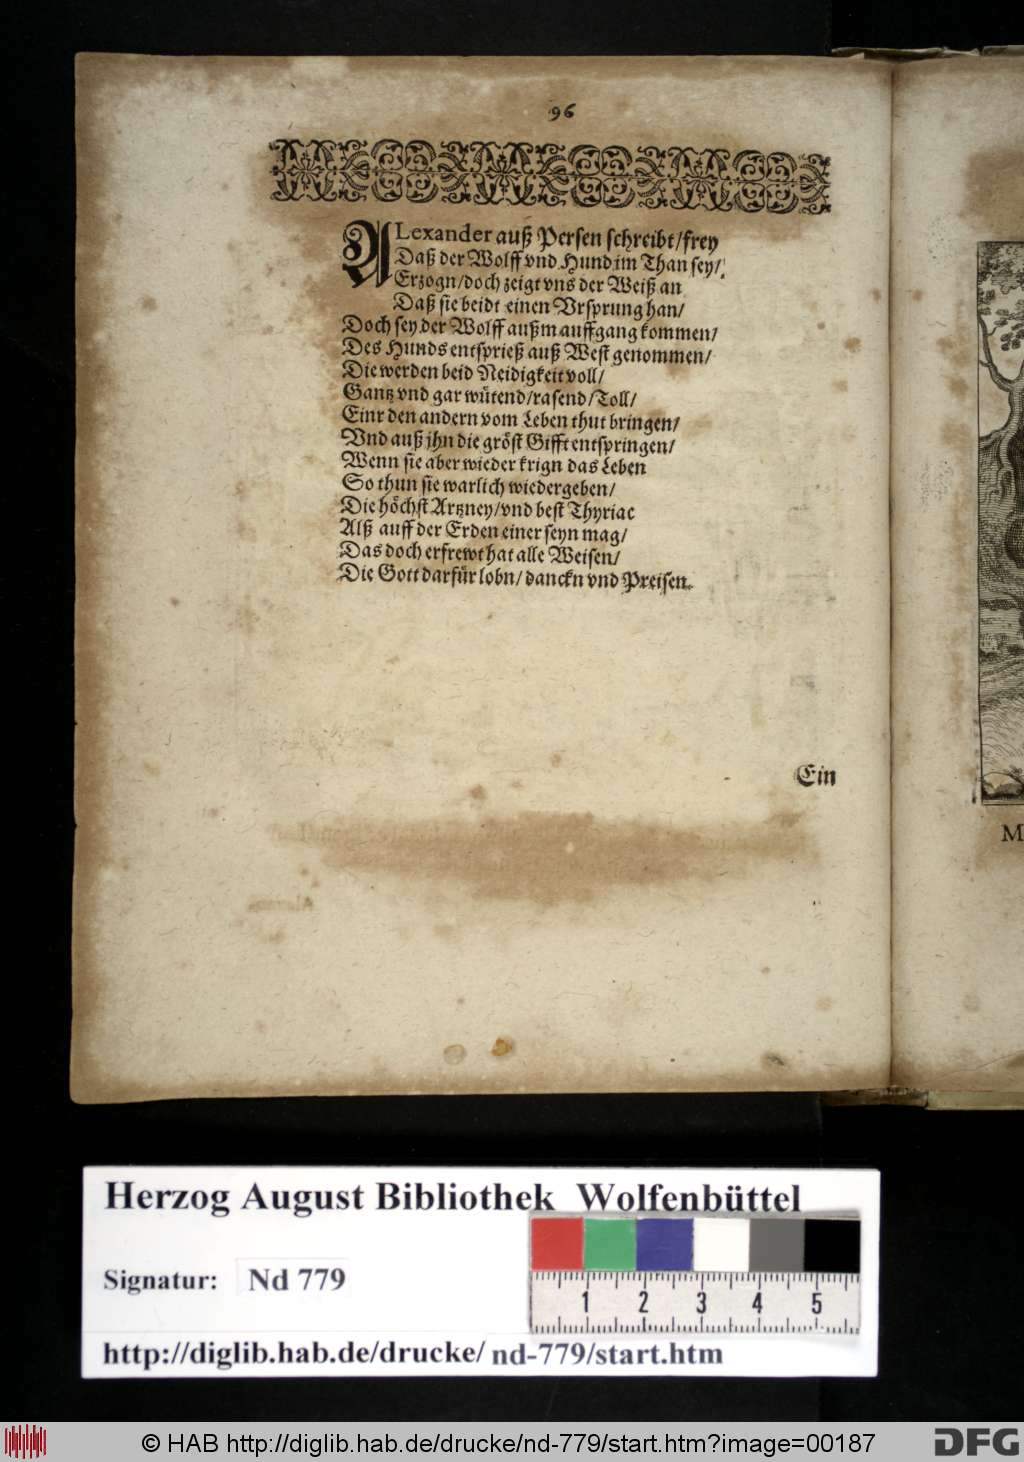 96
ALexander auß Persen schreibt/frey
Daß der Wolff vnd Hund im Than sey/
Erzogn/doch zeigt vns der Weiß an
Daß sie beidt einen Vrsprung han/
Doch sey der Wolff außm auffgang kommen/
Des Hunds entsprieß auß West genommen/
Die werden beid Neidigkeit voll/
Gantz vnd gar wütend/rasend/Toll/
Einr den andern vom Leben thut bringen/
Vnd auß jhn die gröst Gifft entspringen/
Wenn sie aber wieder krign das Leben
So thun sie warlich wiedergeben/
Die höchst Artzney/vnd best Thyriac
Alß auff der Erden einer seyn mag/
Das doch erfrewt hat alle Weisen/
Die Gott darfür lobn/danckn vnd Preisen.
Ein
M
Herzog August Bibliothek Wolfenbüttel
Signatur: Nd 779
1 2 3 4 5
http://diglib.hab.de/drucke/ nd-779/start.htm
© HAB http://diglib.hab.de/drucke/nd-779/start.htm?image=00187
DFG